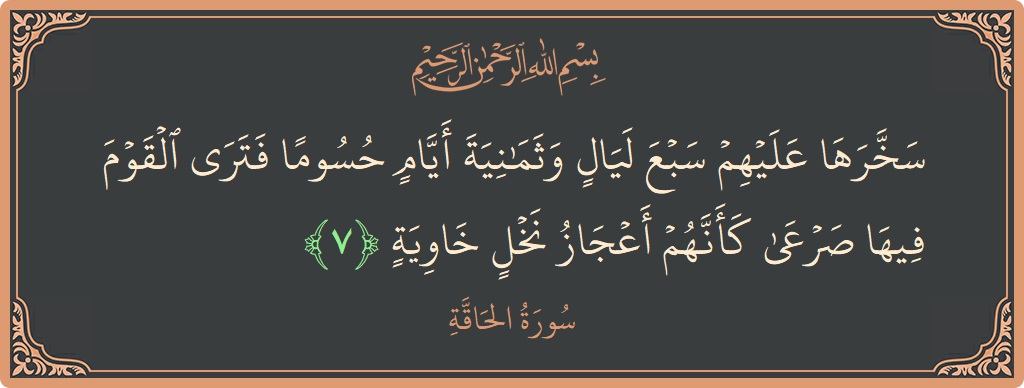 بِسْمِ اللَّهِ الرَّحْمَٰنِ الرَّحِيمِ
سَخَّرَهَا عَلَيْهِمْ سَبْعَ لَيَالٍ وَثَمَٰنِيَةَ أَيَّامٍ حُسُومًا فَتَرَى ٱلْقَوْمَ
فِيهَا صَرْعَىٰ كَأَنَّهُمْ أَعْجَازُ نَخْلٍ خَاوِيَةٍ ﴿٧﴾
سُورَةُ الحَاقَّةِ